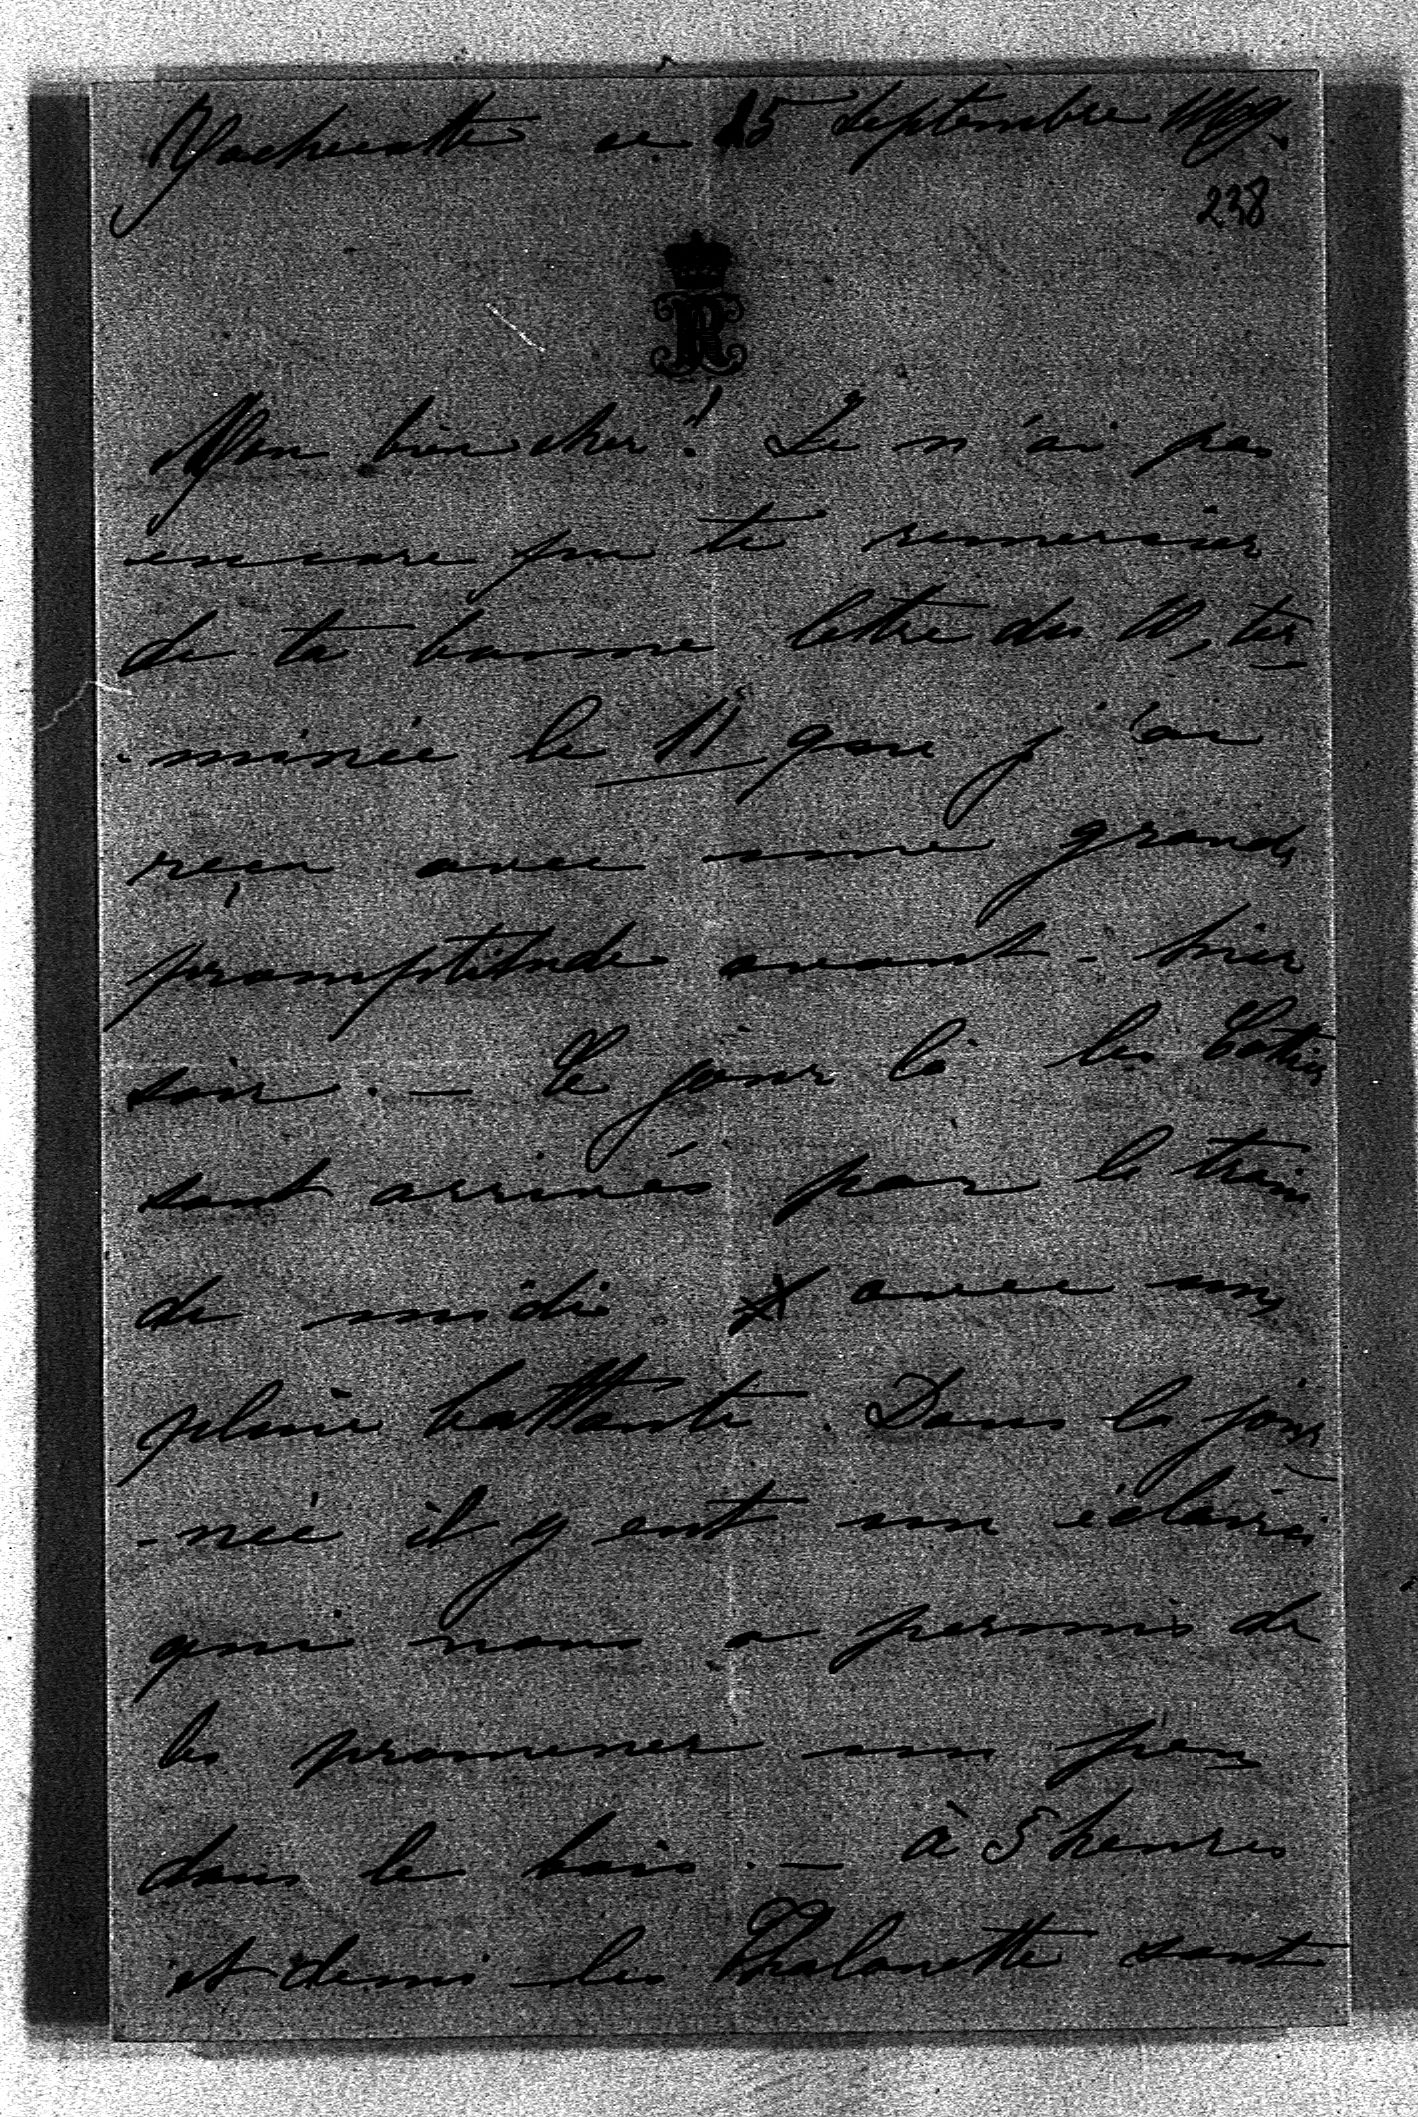 ce 25 Septembre
238
R
Mon bien cher! Je n'ai pas
encore pu te remercier
de ta bonne lettre du 10, ter
-minée le 11 que j'ai
reçu avec une grande
promptitude avant-hier
soir. — Ce jour là les
sont arrivés par le train
de midi avec une
pluie battante. Dans la jour
-née il y eut un éclairci
qui nous a permis de
les promener un peu
dans le bois. — à 5 heures
et demi les sont